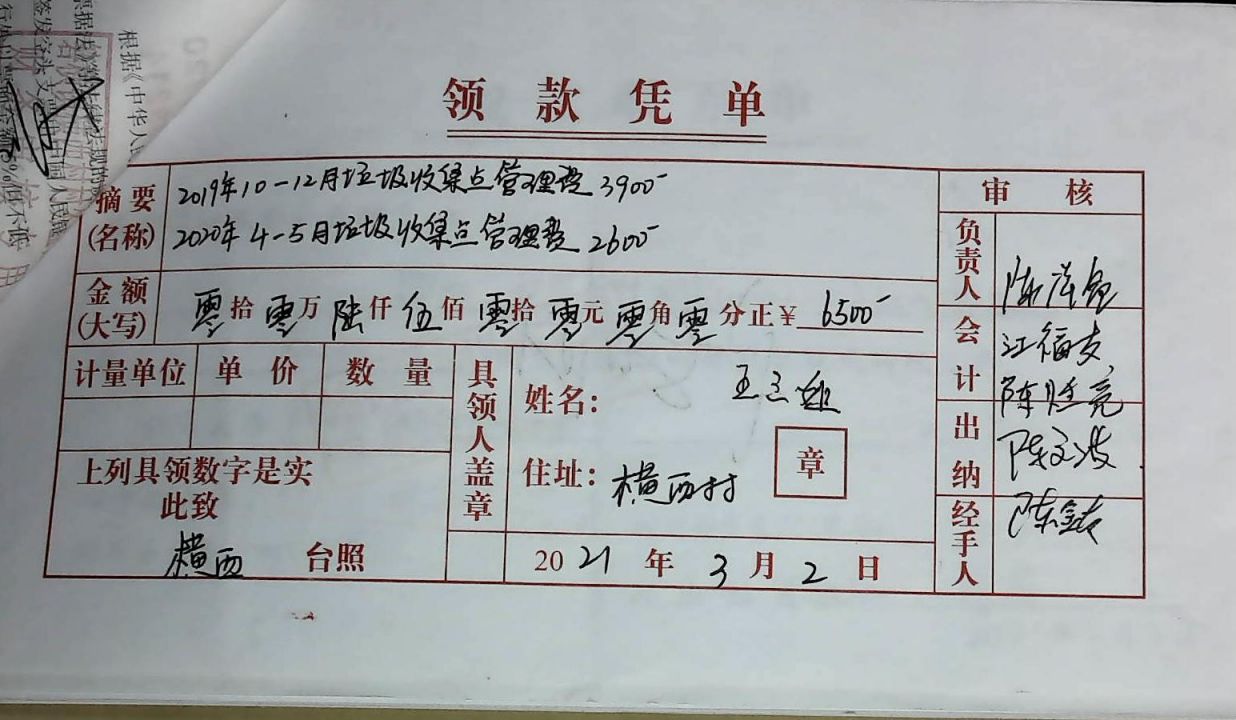 根据《中华人民
领款凭单
摘要
(名称)
2019年10-12月垃圾收集点管理费3900-
2020年4-5月垃圾收集点管理费2600-
金额
(大写)
零拾零万陆仟伍佰零拾零元零角零分正¥6500-
计量单位 单价 数量
上列具领数字是实
此致
横西 台照
具领人盖章
姓名:
住址: 横西村
章
2021年3月2日
审核
负责人
会计
江福友
出纳
陈文波
经手人